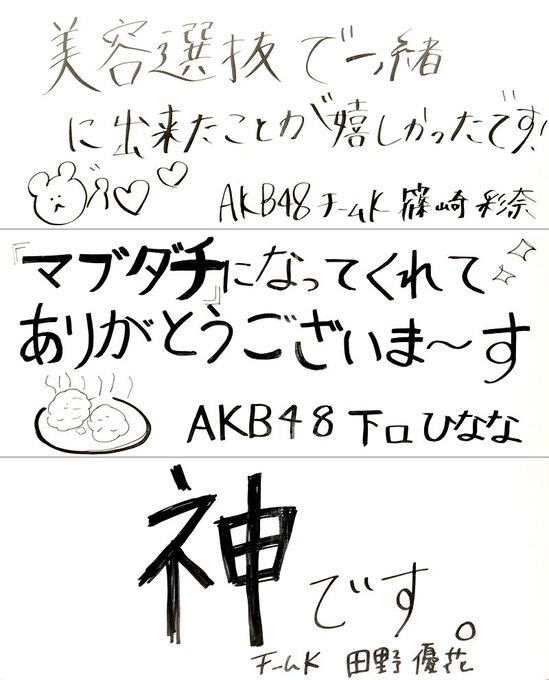 美容選抜で一緒
に出来たことが嬉しかったです!
AKB48 チームK 篠崎 彩奈
『マブダチ』になってくれて
ありがとうございま〜す
AKB48 下口ひなな
神です。
チームK 田野 優花